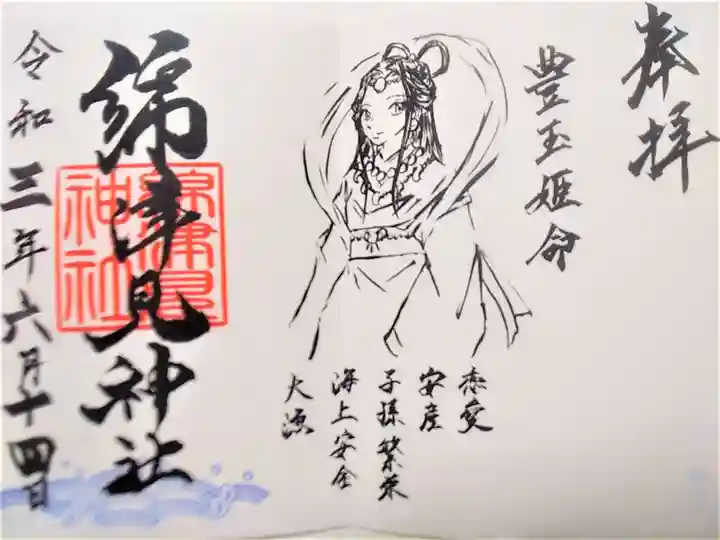 奉拝
豊玉姫命
恋愛
安産
子孫繁栄
海上安全
大漁
綿津見神社
綿津見
神社
令和三年六月十四日